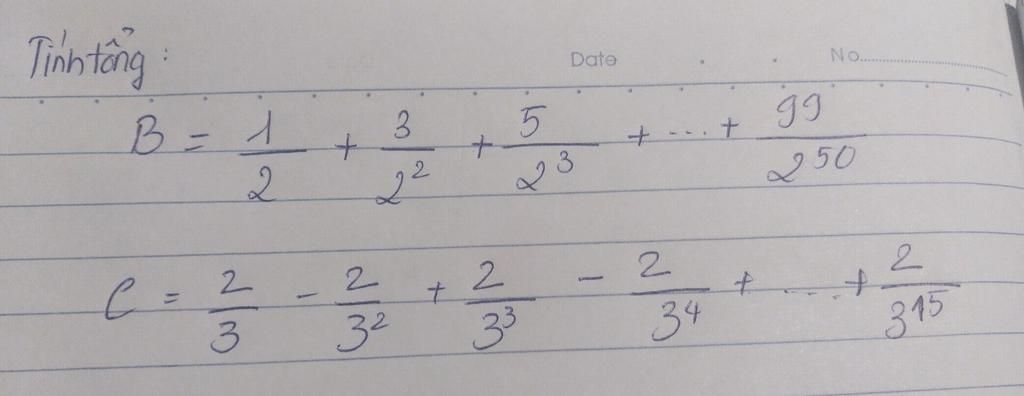 Tính tổng :
Date No
B = 1/2 + 3/2² + 5/2³ + ... + 99/2⁵⁰
C = 2/3 - 2/3² + 2/3³ - 2/3⁴ + .... + 2/3¹⁵